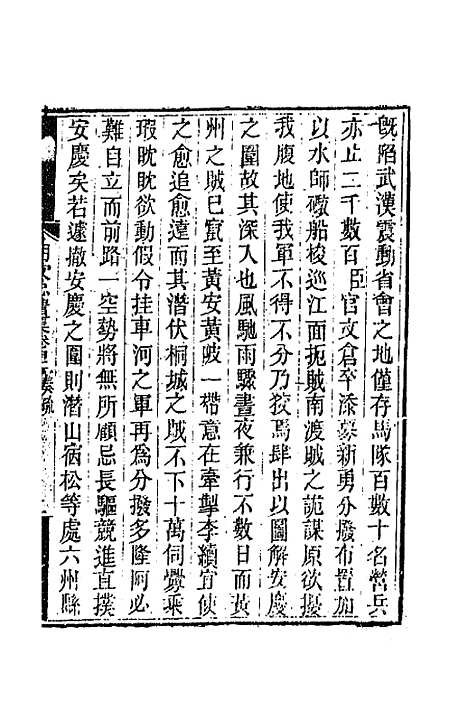 既陷武漢震動省會之地僅存馬隊百數十名營兵
亦止二千數百臣官文倉卒添募新勇分撥布置加
以水師礮船梭巡江面扼賊南渡賊之詭謀原欲擾
我腹地使我軍不得不分乃狡焉肆出以圖解安慶
之圍故其深入也風馳雨驟晝夜兼行不數日而黃
州之賊已竄至黃安黃陂一帶意在牽掣李續宜使
之愈追愈遠而其潛伏桐城之賊不下十萬伺釁乘
瑕眈眈欲動假令挂車河之軍再為分撥多隆阿必
難自立而前路一空勢將無所顧忌長驅競進直撲
安慶矣若遽撤安慶之圍則潛山宿松等處六州縣